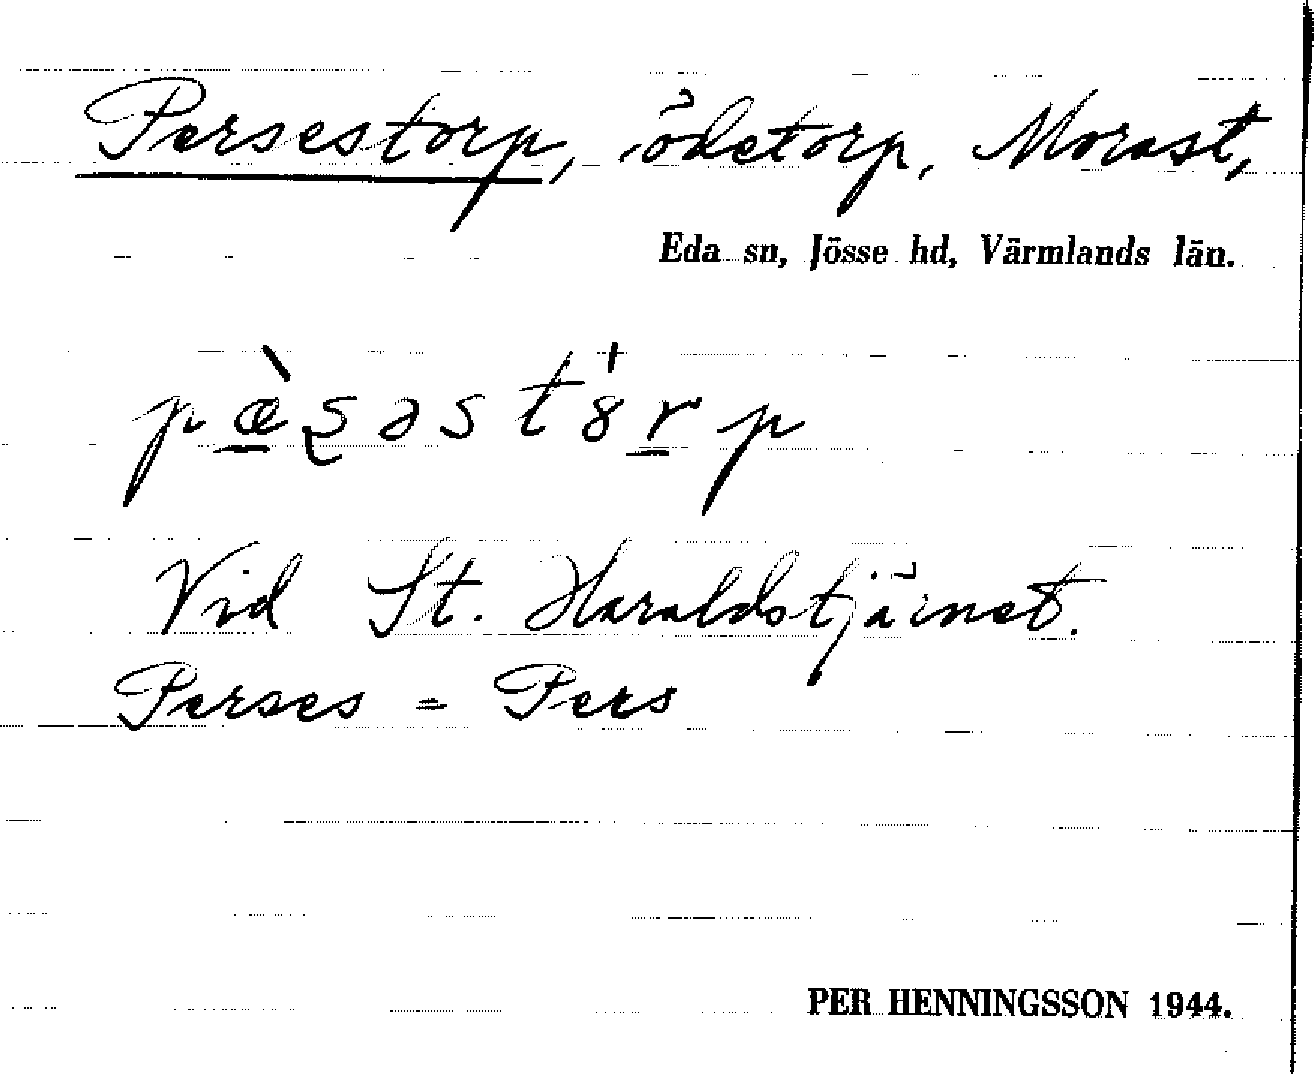 Persestorp, ödetorp, Morast,
Eda sn, Jösse hd, Värmlands län.
pæ̀ʂəstȣrp
Vid St. Haraldstjärnet.
Perses = Pers
PER HENNINGSSON 1944.